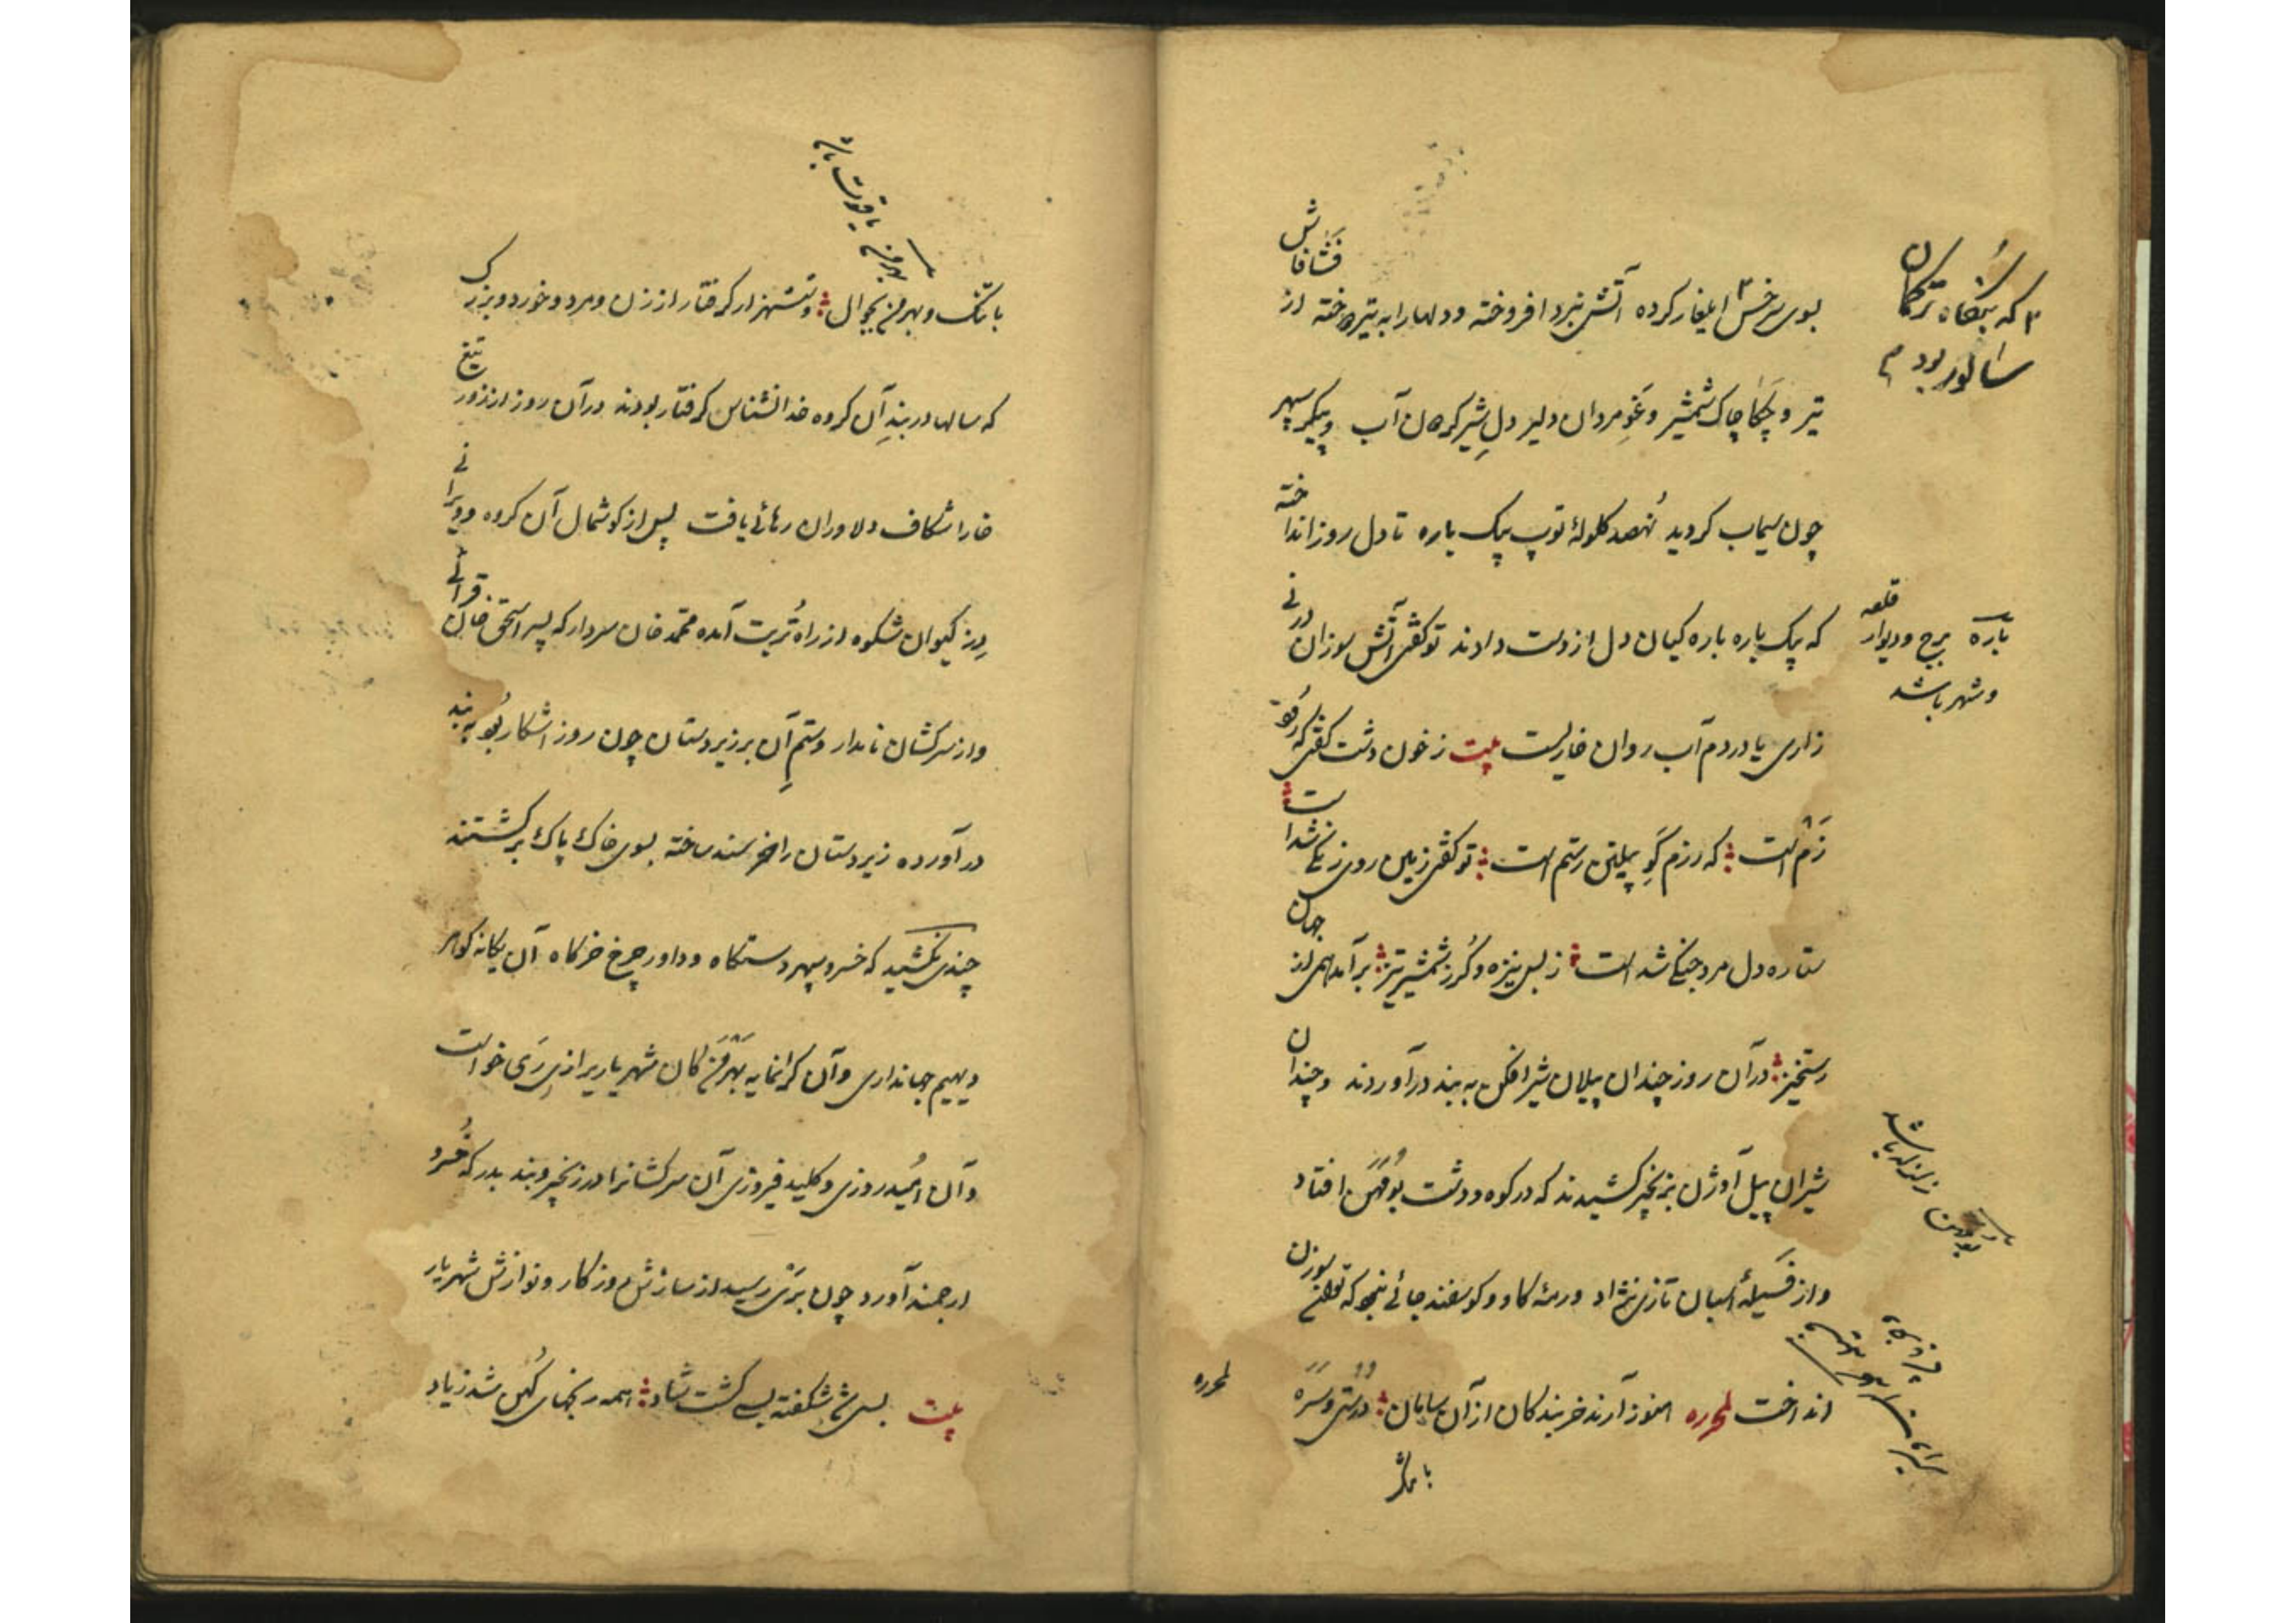 بسوی سرخس ۲ ایلغار کرده آتش نبرد افروخته و دلها را به تیر دوخته از فشافاش
۲ که بنگاه ترکمان
سالور بود م
تیر و چکاچاک شمشیر و غو مردان دلیر دل شیر گردان آب و پیکر سپهر
چون سیماب گردید نُهصد گلولهٔ توپ بیک باره تا دل روز انداخته
که بیک باره باره گیان دل از دست دادند تو گفتی آتش سوزان درنی
باره برج و دیوار قلعه
و شهر باشد
زاری یا در دم آب روان خاریست بیت ز خون دشت گفتی که رود
زَم است که رزم گَوِ پیلتن رستم است تو گفتی زمین روی زنگی شد است
ستاره دل مرد جنگی شد است ز بس نیزه و گرز و شمشیر تیز برآمد همی از جهان
رستخیز در آن روز چندان پیلان شیر افکن به بند درآوردند و چندان
شیران پیل اوژن بزنجیر کشیدند که در کوه و دشت بُومَهَن افتاد
زلزله باشد
و از فسیلهٔ اسبان تازی نژاد و رمهٔ گاو و گوسفند جائی نبود که توان سوزن
انداخت لمحرره هنوز آرند خربندگان از آن سامان دُرُستی و سَرَه
لمحرره
با تنگ و بهرمن بجوال و ششهزار گرفتار از زن و مرد و خورد و بزرک
بهرمن یاقوت باشد
که سالها در بندِ آن گروه خدانشناس گرفتار بودند در آن روز از زور تیغ
خارا شکاف دلاوران رهائی یافت پس از گوشمال آن گروه و ویرانی
دِز کیوان شکوه از راه تُربت آمده محمد خان سردار که پسر اسحق خان قرائی
و از سرکشان نامدار و ستمِ آن بر زیردستان چون روز آشکار بُو به بند
درآورده زیردستان را خرسند ساخته بسوی خاک پاک برگشتند
چندی نکشید که خسرو سپهر دستگاه و داور چرخ خرگاه آن یگانه گوهر
دیهیم جهانداری و آن گرانمایه بَهْرَمَنِ کان شهریاریرا از پی رَی خواست
و آن اُمید روزی و کلید فیروزی آن سرکشانرا در زنجیر و بند بدرگه خُسرو
ارجمند آورد چون برَی رسید از سازش روزگار و نوازش شهریار
بیت بسی شد شکفته بسی گشت شاد همه رنجهای کُهن شد ز یاد